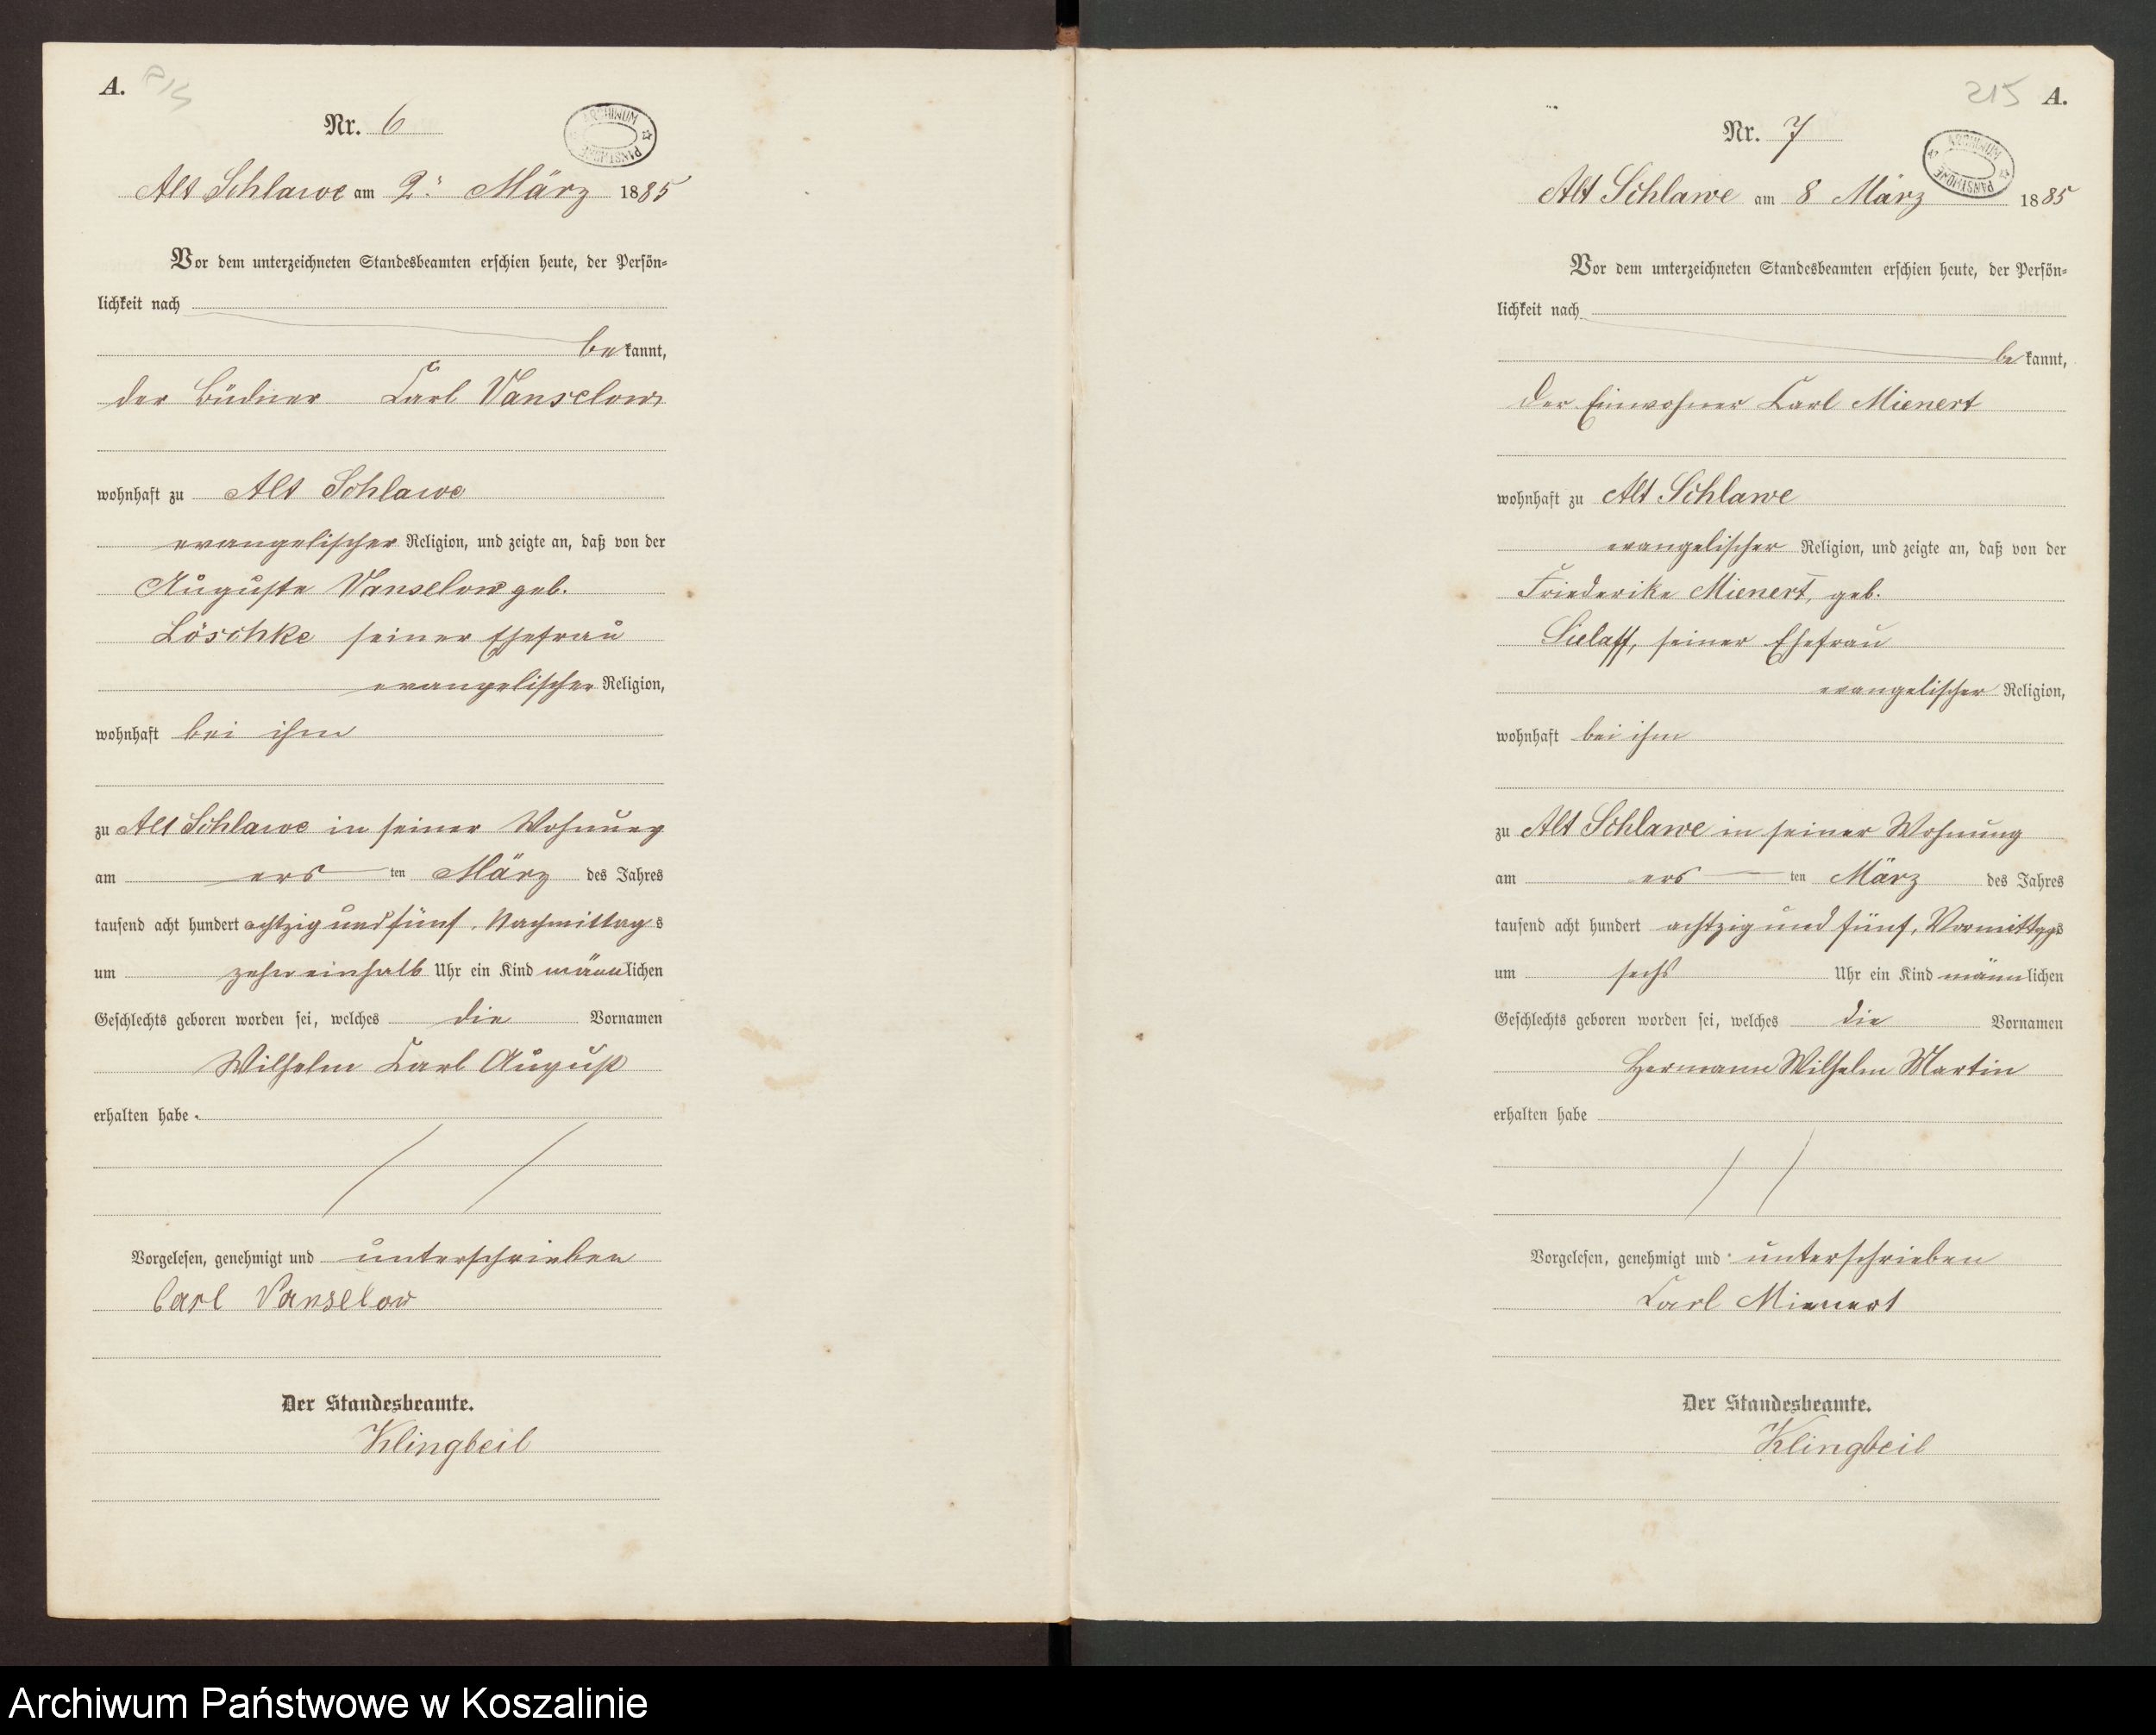 A.
Nr. 6
ARCHIWUM PAŃSTWOWE
Alt Schlawe am 2. März 1885
Vor dem unterzeichneten Standesbeamten erschien heute, der Persön-
lichkeit nach
bekannt,
der Büdner Carl Vanselow
wohnhaft zu Alt Schlawe
evangelischer Religion, und zeigte an, daß von der
Auguste Vanselow geb.
Löschke seiner Ehefrau
evangelischer Religion,
wohnhaft bei ihm
zu Alt Schlawe in seiner Wohnung
am ers ten März des Jahres
tausend acht hundert achtzig und fünf, Nachmittags
um zehn einhalb Uhr ein Kind männlichen
Geschlechts geboren worden sei, welches die Vornamen
Wilhelm Carl August
erhalten habe.
Vorgelesen, genehmigt und unterschrieben
Carl Vanselow
Der Standesbeamte.
Klingbeil
215 A.
Nr. 7
ARCHIWUM PAŃSTWOWE
Alt Schlawe am 8 März 1885
Vor dem unterzeichneten Standesbeamten erschien heute, der Persön-
lichkeit nach
bekannt,
der Einwohner Carl Mienert
wohnhaft zu Alt Schlawe
evangelischer Religion, und zeigte an, daß von der
Friederike Mienert, geb.
Sielaff, seiner Ehefrau
evangelischer Religion,
wohnhaft bei ihm
zu Alt Schlawe in seiner Wohnung
am ers ten März des Jahres
tausend acht hundert achtzig und fünf, Vormittags
um sechs Uhr ein Kind männlichen
Geschlechts geboren worden sei, welches die Vornamen
Hermann Wilhelm Martin
erhalten habe
Vorgelesen, genehmigt und unterschrieben
Carl Mienert
Der Standesbeamte.
Klingbeil
Archiwum Państwowe w Koszalinie